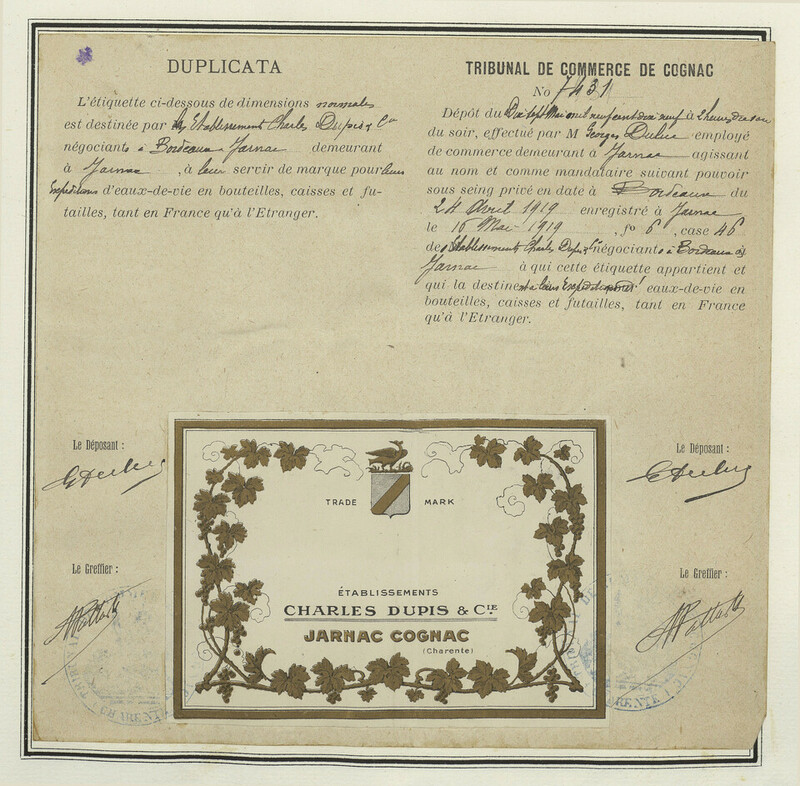 DUPLICATA
L'étiquette ci-dessous de dimensions normales
est destinée par les Etablissements Charles Dupis & Cie
négociants à Bordeaux Jarnac demeurant
à Jarnac , à leur servir de marque pour leurs
Expéditions d'eaux-de-vie en bouteilles, caisses et fu-
tailles, tant en France qu'à l'Etranger.
TRIBUNAL DE COMMERCE DE COGNAC
No 7431
Dépôt du Dix sept Mai mil neuf cent dix neuf à 2 heures du soir
du soir, effectué par M Georges employé
de commerce demeurant à Jarnac agissant
au nom et comme mandataire suivant pouvoir
sous seing privé en date à Bordeaux du
24 Avril 1919 enregistré à Jarnac
le 16 Mai 1919 , fo 6 , case 46
des Etablissements Charles Dupis & Cie négociants à Bordeaux &
Jarnac à qui cette étiquette appartient et
qui la destinent à leurs Expéditions d'eaux-de-vie en
bouteilles, caisses et futailles, tant en France
qu'à l'Etranger.
Le Déposant :
Le Déposant :
Le Greffier :
Le Greffier :
TRADE MARK
ÉTABLISSEMENTS
CHARLES DUPIS & CIE
JARNAC COGNAC
(Charente)
CHARENTE